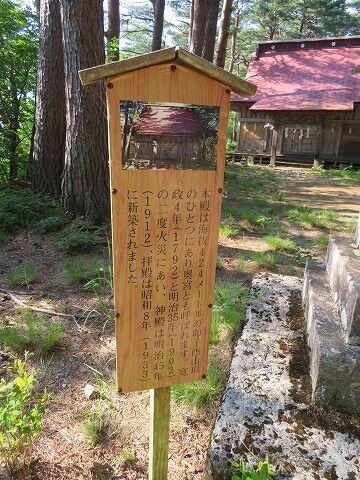 本殿は海抜424メートルの明手西山頂
のひとつにあり奥宮とも呼ばれます。寛
政4年(1792)と明治35年(1902)
の二度火災にあい、神殿は明治45年
(1912)拝殿は昭和8年(1933)
に新築されました。